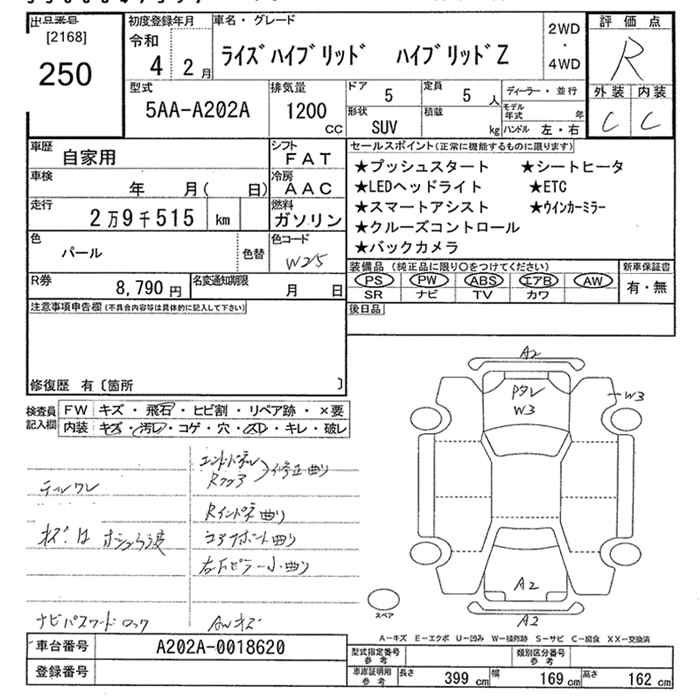 出品番号
[2168]
250
初度登録年月
令和
4 2月
車名・グレード
ライズハイブリッド ハイブリッドZ
2WD
・
4WD
評価点
R
外装 内装
C C
型式
5AA-A202A
排気量
1200
CC
ドア
5
定員
5 人
形状
SUV
積載
kg
ディーラー・並行
モデル年式 年
ハンドル 左・右
車歴
自家用
シフト
FAT
車検
年 月( 日)
冷房
AAC
走行
2万9千515 km
燃料
ガソリン
色
パール
色替
色コード
W25
R券
8,790 円
名変通知期限
月 日
セールスポイント(正常に機能するものに限ります)
★プッシュスタート ★シートヒータ
★LEDヘッドライト ★ETC
★スマートアシスト ★ウインカーミラー
★クルーズコントロール
★バックカメラ
装備品(純正品に限り○をつけてください)
PS PW ABS エアB AW
SR ナビ TV カワ
新車保証書
有・無
後日品
注意事項申告欄(不具合内容等は具体的に記入して下さい)
修復歴 有〔箇所 〕
検査員記入欄
FW キズ・飛石・ヒビ割・リペア跡・×要
内装 キズ・汚レ・コゲ・穴・スレ・キレ・破レ
エンドパネル
Rフロア
修正曲り
Rインドパネ曲り
コアサポート曲り
右下ピラー小曲り
ナビパスワードロック
AWキズ
A2
Pタレ
W3
W3
A2
A2
スペア
A-キズ E-エクボ U-凹み W-補修跡 S-サビ C-腐食 XX-交換済
車台番号
A202A-0018620
登録番号
型式指定番号
参考
類別区分番号
参考
車庫証明用
参考
長さ 399 cm 幅 169 cm 高さ 162 cm